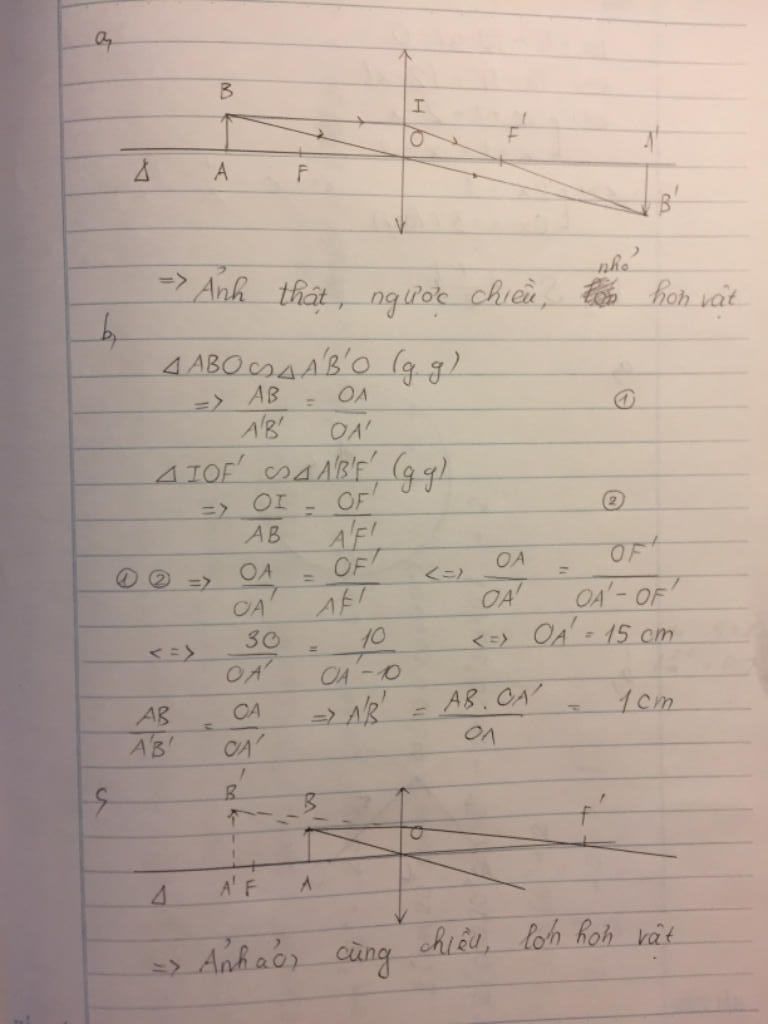 a,
B
I
O
F'
A'
Δ
A
F
B'
=> Ảnh thật, ngược chiều, nhỏ hơn vật
b,
△ABO ∽ △A'B'O (g.g)
=> AB/A'B' = OA/OA' ①
△IOF' ∽ △A'B'F' (g g)
=> OI/AB = OF'/A'F' ②
① ② => OA/OA' = OF'/A'F' <=> OA/OA' = OF'/(OA' - OF')
<=> 30/OA' = 10/(OA' - 10) <=> OA' = 15 cm
AB/A'B' = OA/OA' => A'B' = AB . OA'/OA = 1 cm
c,
B'
B
O
F'
Δ
A'
F
A
=> Ảnh ảo, cùng chiều, lớn hơn vật